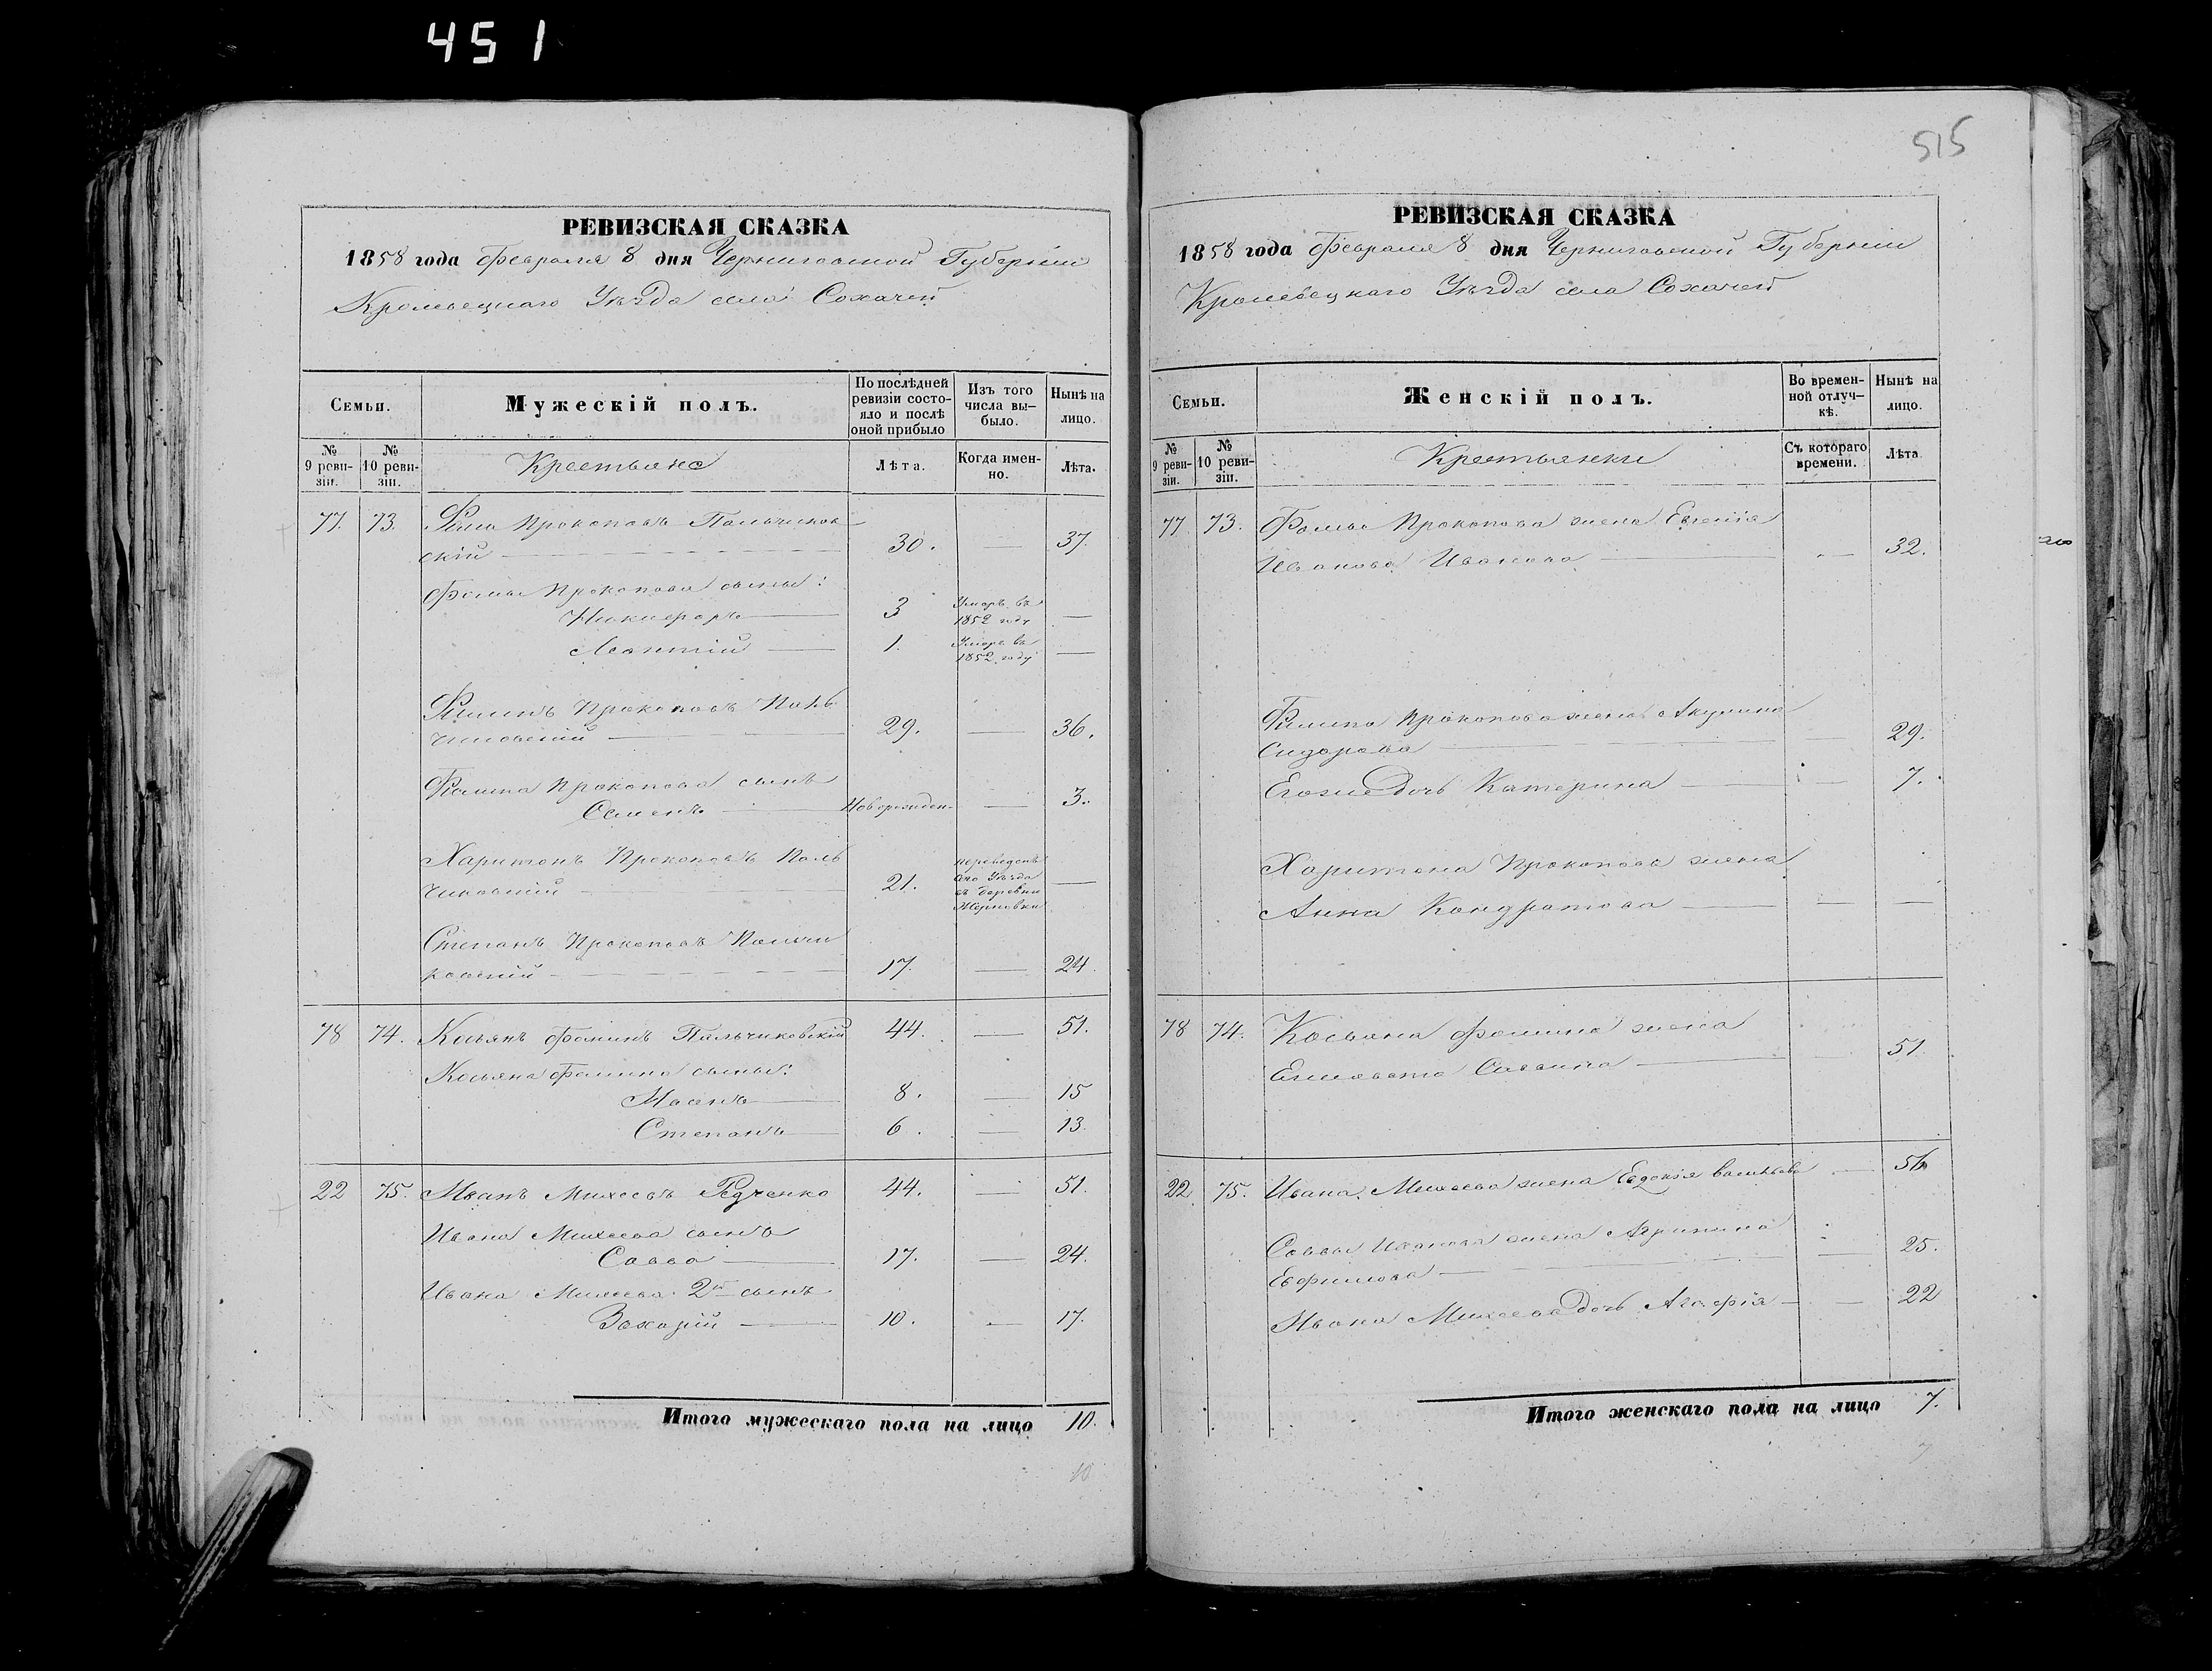 451
РЕВИЗСКАЯ СКАЗКА
1858 года Февраля 8 дня Черниговской Губернии
Кролевецкаго Уѣзда села Сохачей
Семьи.
Мужескій полъ.
По послѣдней ревизіи состояло и послѣ оной прибыло
Изъ того числа выбыло.
Нынѣ на лицо.
№ 9 ревизіи.
№ 10 ревизіи.
Крестьяне
Лѣта.
Когда именно.
Лѣта.
77. 73. Прокоповъ Пальчиков
скій 30. — 37.
Фомы Прокопова сыны:
Никифоръ 3 Умеръ въ 1852 году —
Леонтій 1. Умеръ въ 1852 году —
Филипъ Прокоповъ Паль
чиковскій 29. — 36.
Филипа Прокопова сынъ
Семенъ Новорожден. — 3.
Харитонъ Прокоповъ Паль
чиковскій 21. переведенъ сего Уѣзда въ деревню —
Степанъ Прокоповъ Пальчи
ковскій 17. — 24.
78 74. Касьянъ Фоминъ Пальчиковскій 44. — 51.
Касьяна Фомина сыны:
Иванъ 8. — 15
Степанъ 6. — 13.
22 75. Иванъ Михеевъ Редченко 44. — 51.
Ивана Михеева сынъ
Савва 17. — 24.
Ивана Михеева 2й сынъ
Захарій 10. — 17.
Итого мужескаго пола на лицо 10.
10
515
РЕВИЗСКАЯ СКАЗКА
1858 года Февраля 8 дня Черниговской Губерніи
Кролевецкаго Уѣзда села Сохачей
Семьи.
Женскій полъ.
Во временной отлучкѣ.
Нынѣ на лицо.
№ 9 ревизіи.
№ 10 ревизіи.
Крестьянки
Съ котораго времени.
Лѣта
77 73. Фомы Прокопова жена Евгенія
Иванова — 32.
Филипа Прокопова жена Акулина
Сидорова — 29.
Егоже дочь Катерина — 7.
Харитона Прокопова жена
Анна Кондратова — —
78 74. Касьяна Фомина жена
Елисавета Саввина 51.
22 75. Ивана Михеева жена Евдокія Васильева — 51
Саввы Иванова жена Агрипина
Евфимова — 25.
Ивана Михеева дочь Агафія — 22
Итого женскаго пола на лицо 7.
7